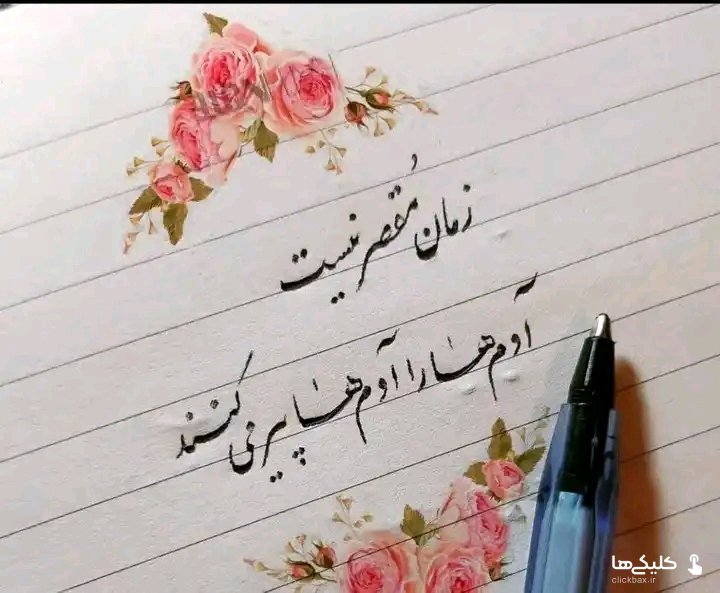 زمان مُقصر نیست
آدم هـا را آدم هـا پیر می کنند
کلیکی‌ها
clickbax.ir